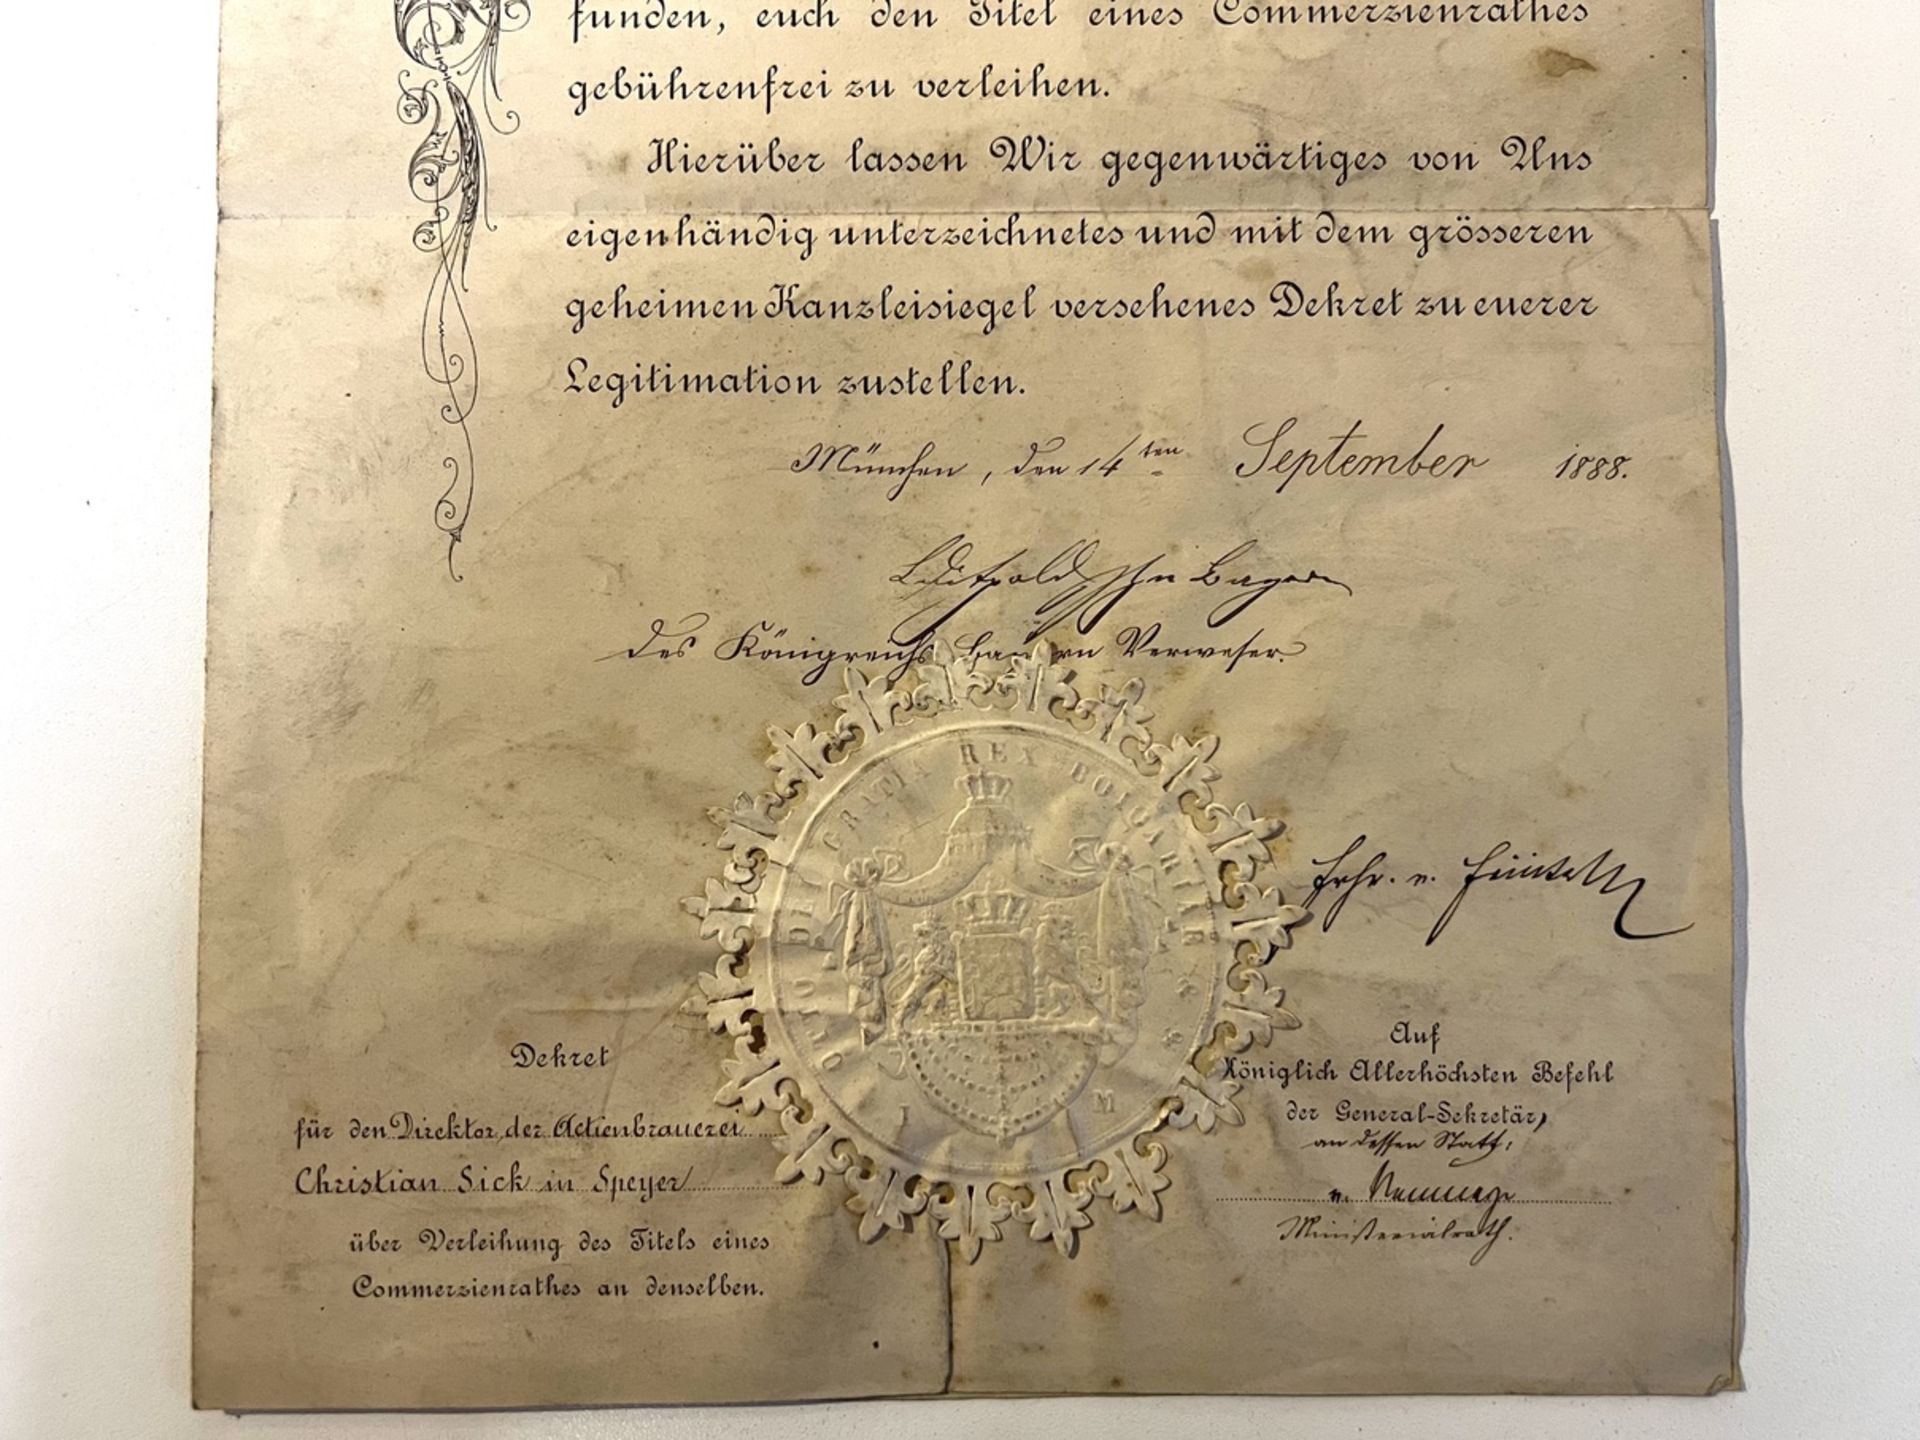 funden, euch den Titel eines Commerzienrathes
gebührenfrei zu verleihen.
Hierüber lassen Wir gegenwärtiges von Uns
eigenhändig unterzeichnetes und mit dem grösseren
geheimen Kanzleisiegel versehenes Dekret zu euerer
Legitimation zustellen.
München, den 14ten September 1888.
Luitpold, Prz. v. Bayern
des Königreichs Bayern Verweser.
OTTO DEI GRATIA REX BOIOARIAE
Frhr. v.
Dekret
für den Direktor der Actienbrauerei
Christian Sick in Speyer
über Verleihung des Titels eines
Commerzienrathes an denselben.
Auf
Königlich Allerhöchsten Befehl
der General-Sekretär,
an dessen Statt:
v.
Ministerialrath.